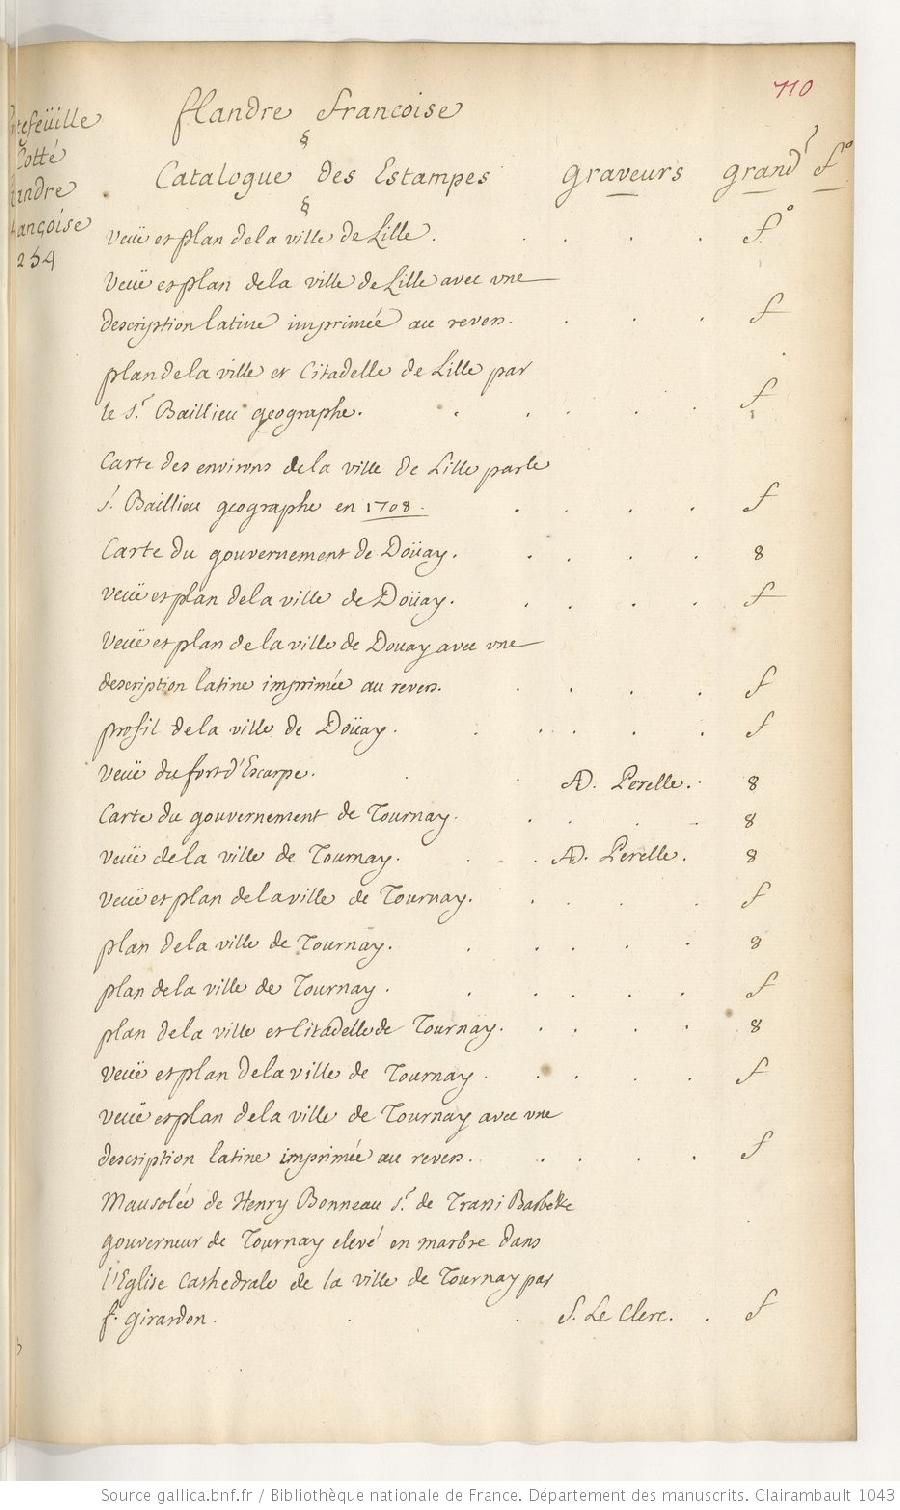 710
flandre francoise
§
Catalogue des Estampes graveurs grandr. f°
§
tefeüille
Cotté
andre
ançoise
254
Veüe et plan de la ville de Lille. f°
Veüe et plan de la ville de Lille avec une
description latine imprimée au revers. f
plan de la ville et Citadelle de Lille par
le Sr. Baillieu geographe. f
Carte des environs de la ville de Lille par le
Sr. Baillieu geographe en 1708. f
Carte du gouvernement de Doüay. 8
Veüe et plan de la ville de Doüay. f
Veüe et plan de la ville de Douay avec une
description latine imprimée au revers. f
profil de la ville de Doüay. f
Veüe du fort d'Escarpe. AD. Perelle. 8
Carte du gouvernement de Tournay. 8
Veüe de la ville de Tournay. AD. Perelle. 8
Veüe et plan de la ville de Tournay. f
plan de la ville de Tournay. 8
plan de la ville de Tournay. f
plan de la ville et Citadelle de Tournay. 8
Veüe et plan de la ville de Tournay. f
Veüe et plan de la ville de Tournay avec une
description latine imprimée au revers. f
Mausolée de Henry Bonneau Sr. de Trassi
gouverneur de Tournay elevé en marbre dans
l'Eglise Cathedrale de la ville de Tournay par
f. Girardon. S. Le Clerc. f
Source gallica.bnf.fr / Bibliothèque nationale de France. Département des manuscrits. Clairambault 1043